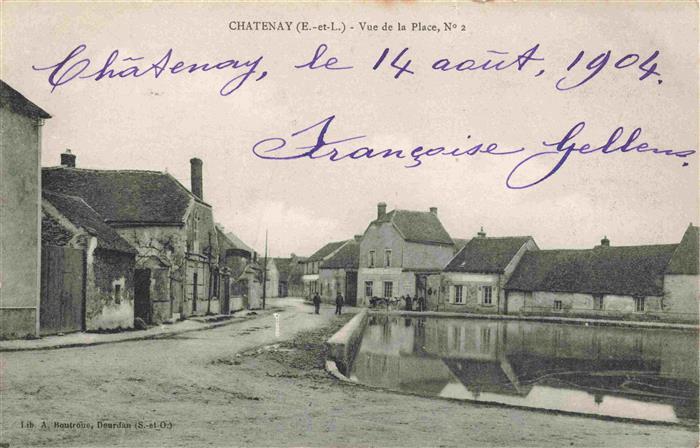 CHATENAY (E.-et-L.) - Vue de la Place, Nº 2
Châtenay, le 14 août, 1904.
Françoise Gellens.
Lib. A. Boutroue, Dourdan (S.-et-O.)